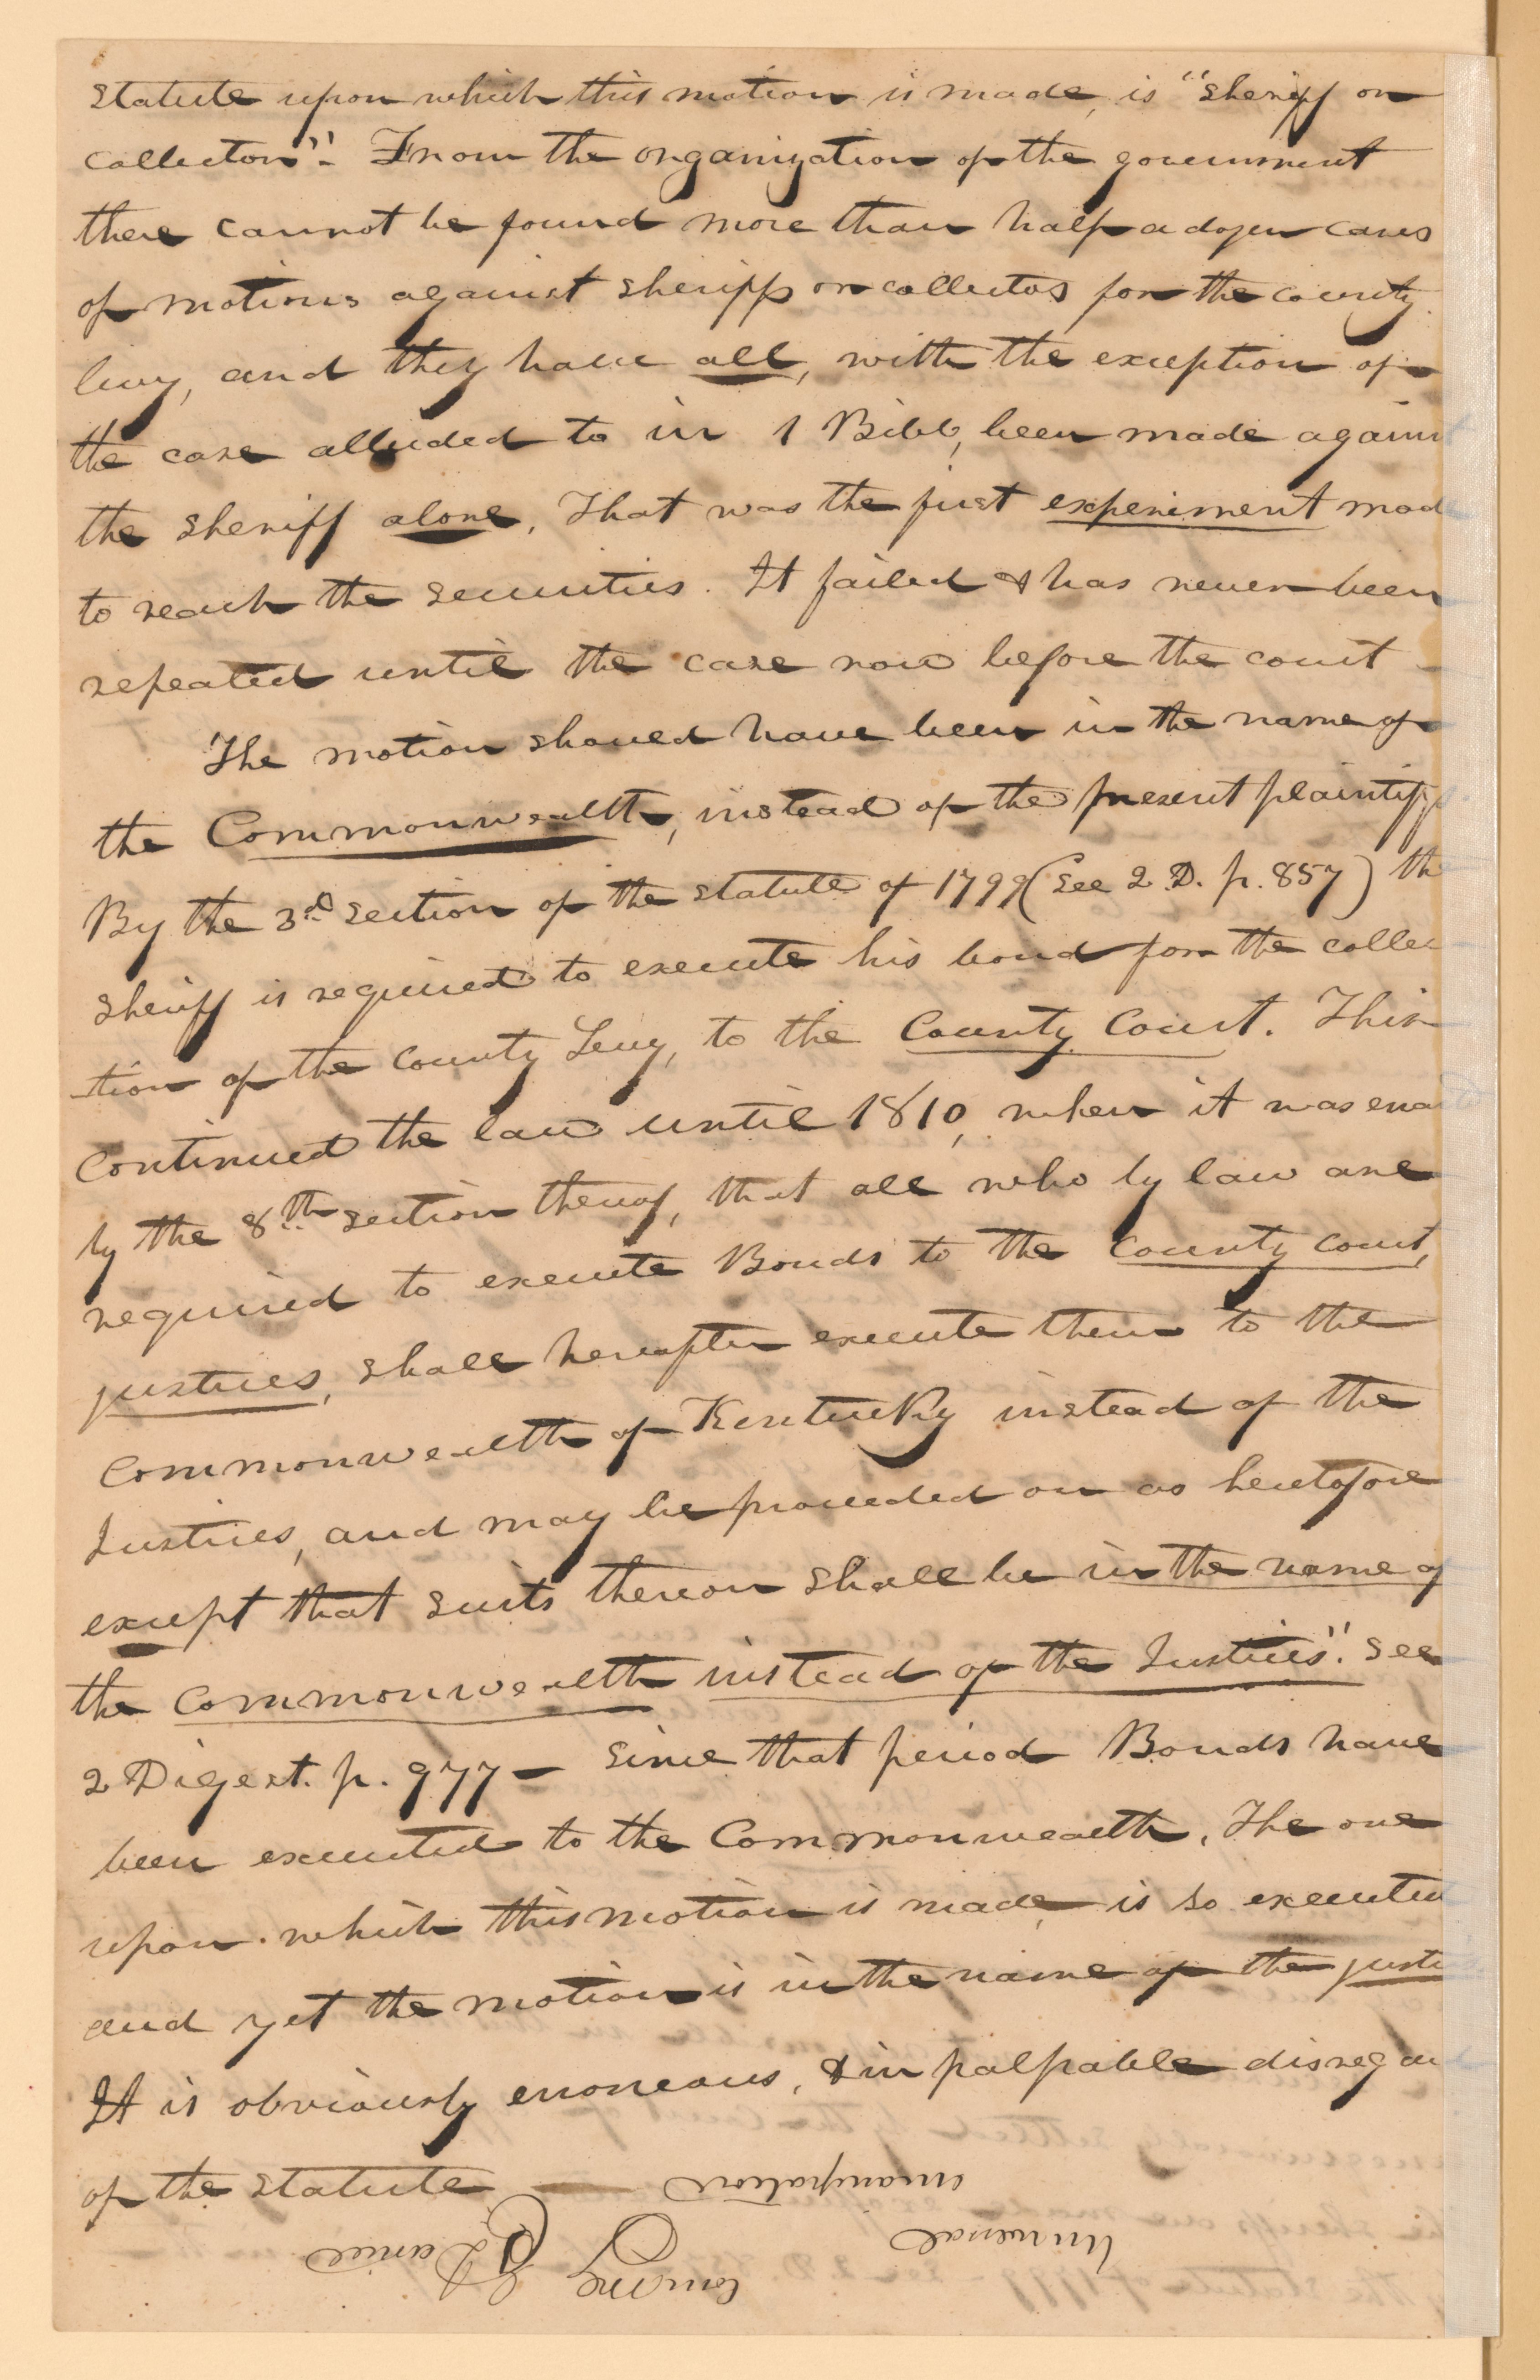 statute upon which this motion is made, is "sheriff or
collector". From the organization of the government
there cannot be found more than half a dozen cases
of motions against sheriffs or collectors for the county
levy, and they have all, with the exception of
the case alluded to in 1 Bibb, been made against
the sheriff alone. That was the first experiment made
to reach the securities. It failed & has never been
repeated until the case now before the court —
The motion should have been in the name of
the Commonwealth, instead of the present plaintiffs.
By the 3d section of the statute of 1799 (see 2 D. p. 857) the
sheriff is required to execute his bond for the collec
-tion of the county Levy, to the County Court. This
continued the law until 1810, when it was
by the 8th section thereof, that all who by law are
required to execute Bonds to the county court,
justices, shall hereafter execute them to the
Commonwealth of Kentucky instead of the
Justices, and may be proceeded on as heretofore
except that suits thereon shall be in the name of
the Commonwealth instead of the Justices". See
2 Digest. p. 977 — Since that period Bonds have
been executed to the Commonwealth. The one
upon which this motion is made, is so executed
and yet the motion is in the name of the
It is obviously erroneous, & in palpable disregard
of the statute —
Universal
emancipation
Daniel